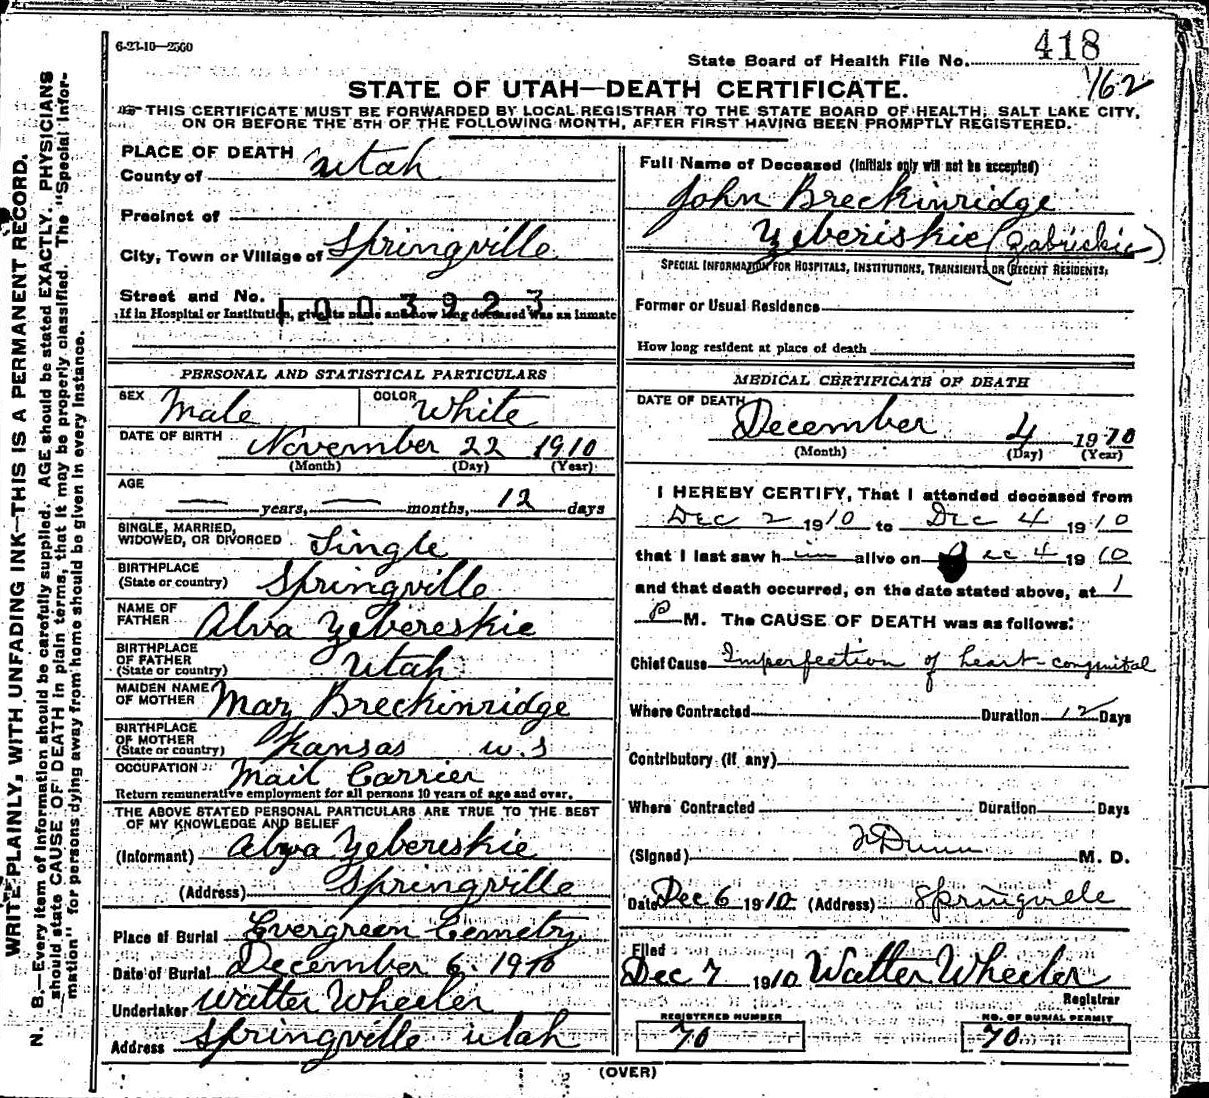 6-23-10—2500
State Board of Health File No. 418
162
STATE OF UTAH—DEATH CERTIFICATE.
THIS CERTIFICATE MUST BE FORWARDED BY LOCAL REGISTRAR TO THE STATE BOARD OF HEALTH, SALT LAKE CITY,
ON OR BEFORE THE 5TH OF THE FOLLOWING MONTH, AFTER FIRST HAVING BEEN PROMPTLY REGISTERED.
WRITE PLAINLY, WITH UNFADING INK—THIS IS A PERMANENT RECORD.
N. B.—Every item of information should be carefully supplied. AGE should be stated EXACTLY. PHYSICIANS
should state CAUSE OF DEATH in plain terms, that it may be properly classified. The "Special Infor-
mation" for persons dying away from home should be given in every instance.
PLACE OF DEATH
County of Utah
Precinct of
City, Town or Village of Springville
Street and No.
1003923
If in Hospital or Institution, give its name and how long deceased was an inmate
PERSONAL AND STATISTICAL PARTICULARS
SEX Male COLOR White
DATE OF BIRTH November 22 1910
(Month) (Day) (Year)
AGE
— years, — months, 12 days
SINGLE, MARRIED,
WIDOWED, OR DIVORCED Single
BIRTHPLACE
(State or country) Springville
NAME OF
FATHER Alva Zebereskie
BIRTHPLACE
OF FATHER
(State or country) Utah
MAIDEN NAME
OF MOTHER May Breckinridge
BIRTHPLACE
OF MOTHER
(State or country) Kansas U.S
OCCUPATION Mail Carrier
Return remunerative employment for all persons 10 years of age and over.
THE ABOVE STATED PERSONAL PARTICULARS ARE TRUE TO THE BEST
OF MY KNOWLEDGE AND BELIEF
(Informant) Alva Zebereskie
(Address) Springville
Place of Burial Evergreen Cemetry
Date of Burial December 6, 1910
Undertaker Walter Wheeler
Address Springville Utah
Full Name of Deceased (Initials only will not be accepted)
John Breckinridge
Zeberiskie (Zabriskie)
SPECIAL INFORMATION FOR HOSPITALS, INSTITUTIONS, TRANSIENTS OR RECENT RESIDENTS,
Former or Usual Residence
How long resident at place of death
MEDICAL CERTIFICATE OF DEATH
DATE OF DEATH
December 4 1910
(Month) (Day) (Year)
I HEREBY CERTIFY, That I attended deceased from
Dec 2 1910 to Dec 4 1910
that I last saw him alive on Dec 4 1910
and that death occurred, on the date stated above, at 1
P M. The CAUSE OF DEATH was as follows:
Chief Cause Imperfection of heart-congenital
Where Contracted Duration 12 Days
Contributory (if any)
Where Contracted Duration Days
(Signed) Dunn M. D.
Date Dec 6 1910 (Address) Springville
Filed
Dec 7 1910 Walter Wheeler
Registrar
REGISTERED NUMBER
70
NO. OF BURIAL PERMIT
70
(OVER)